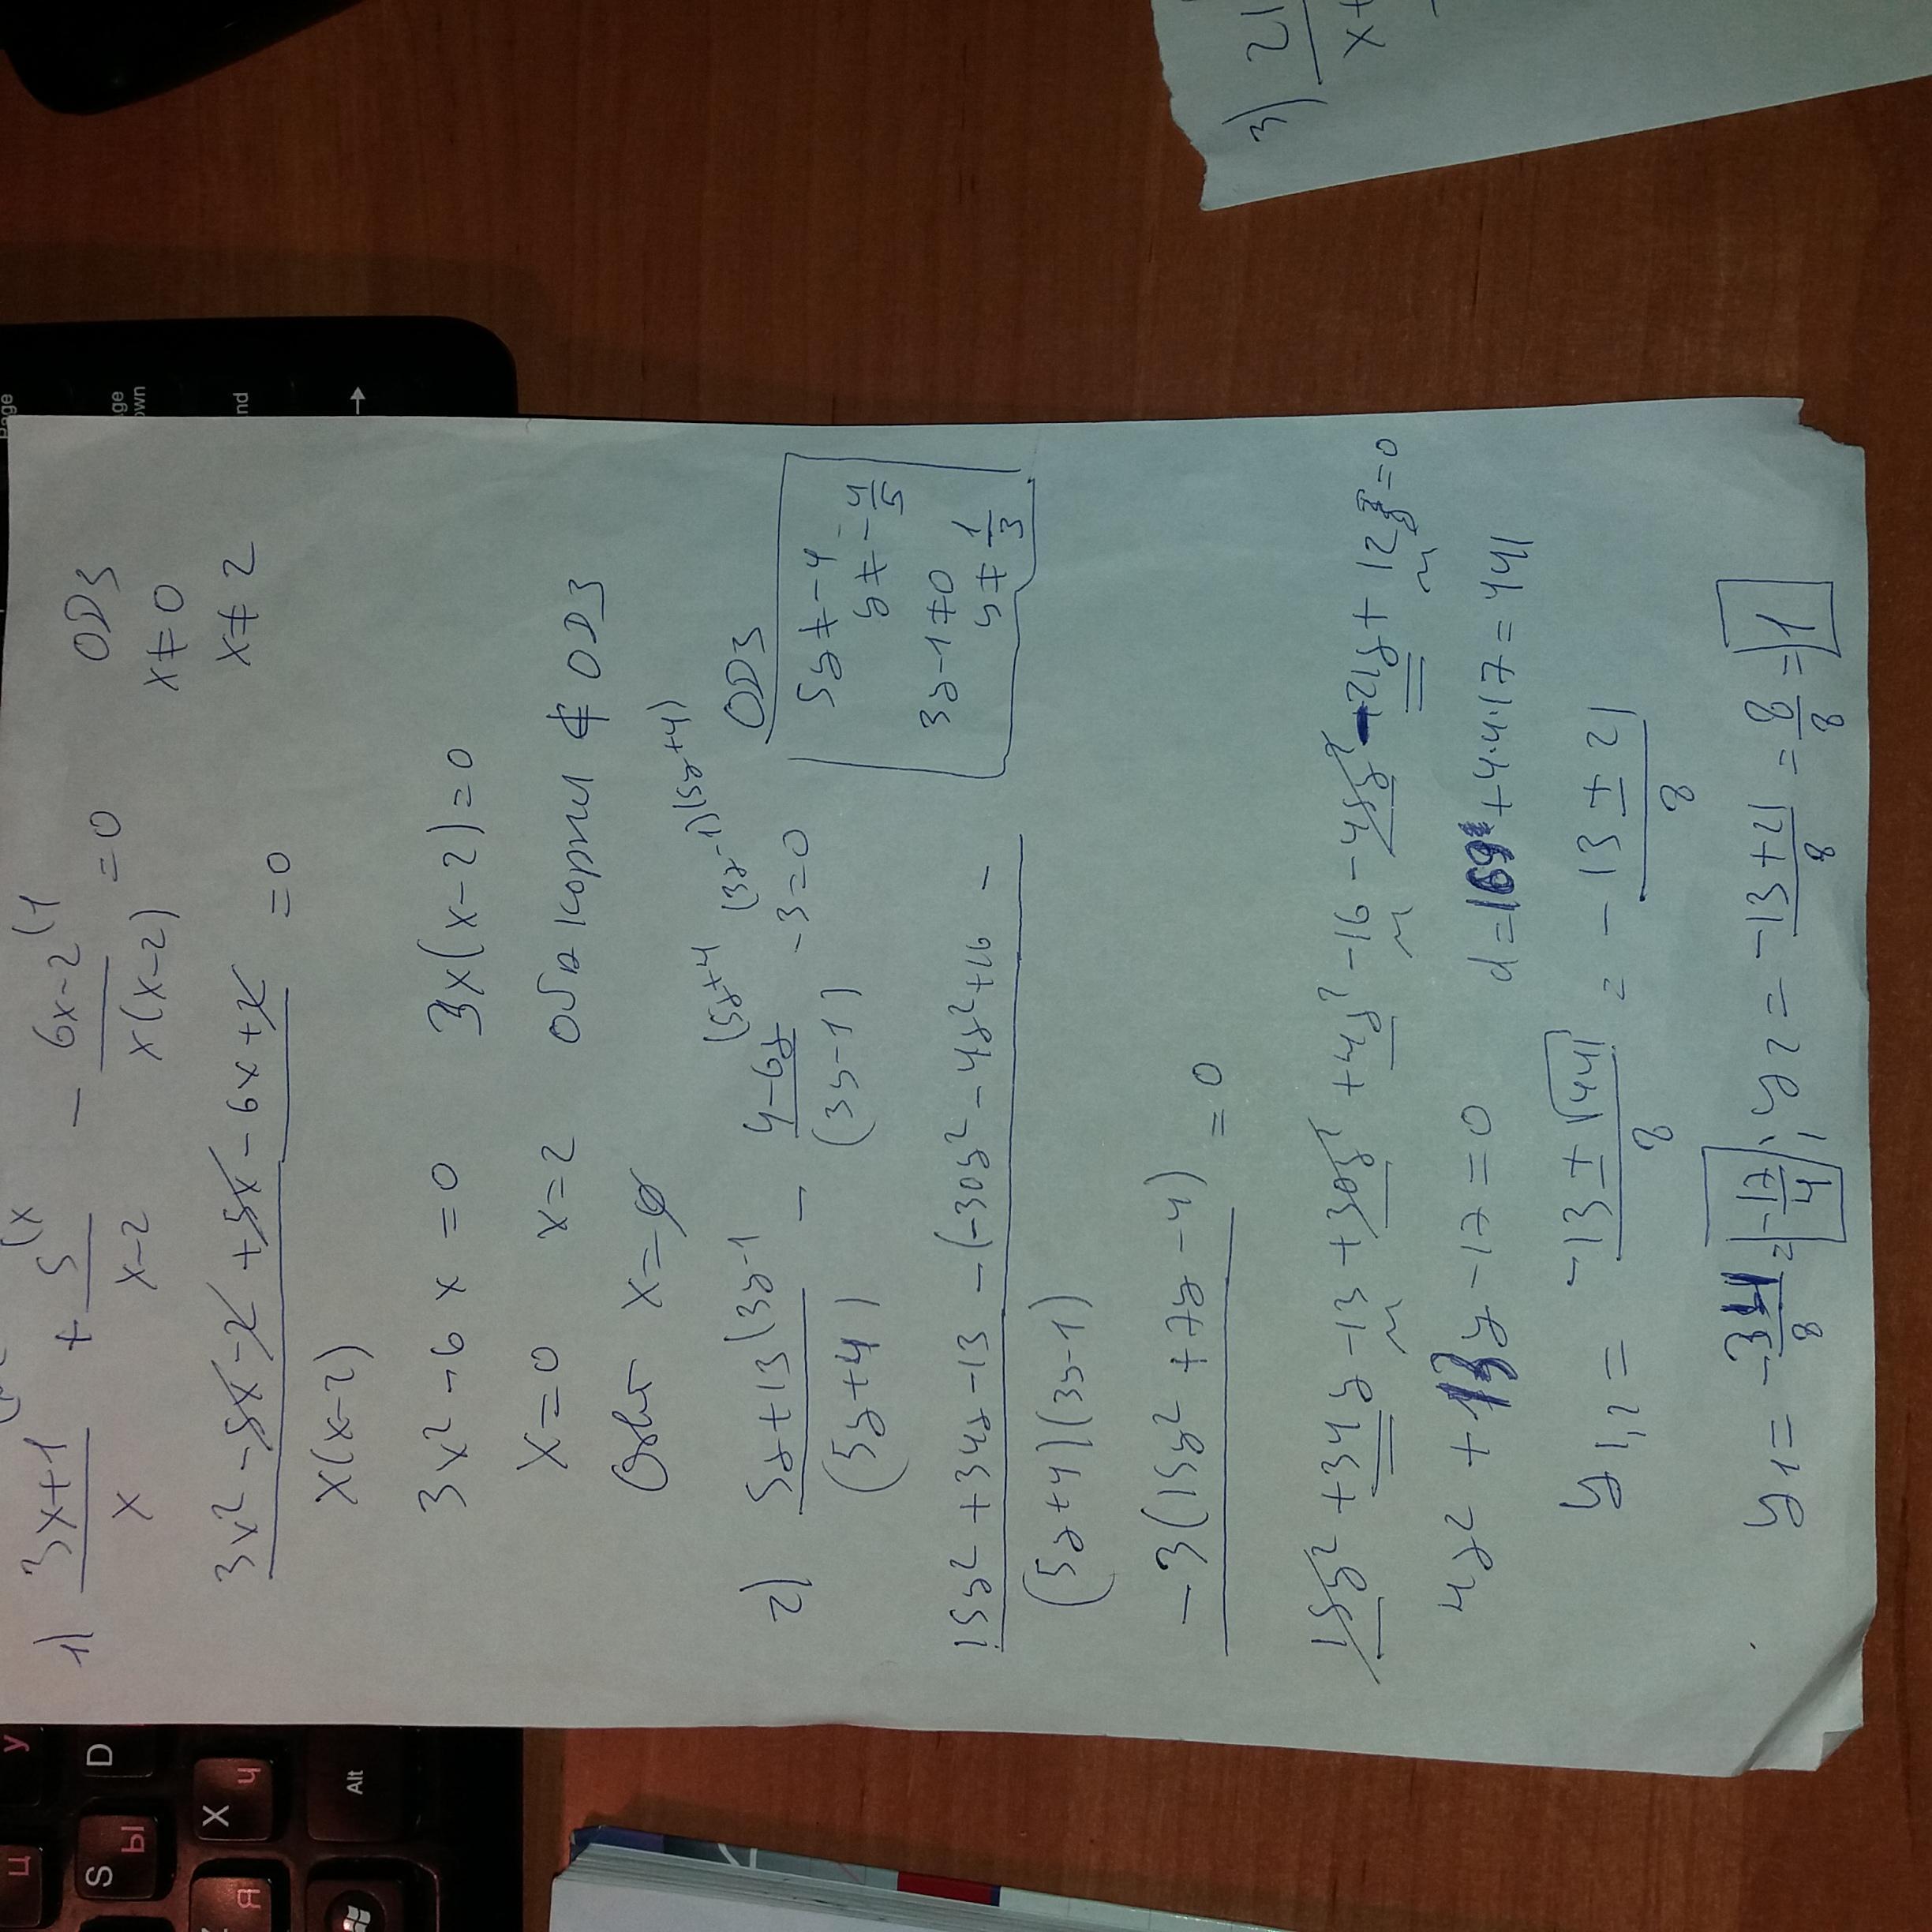 1) (3x+1)/x + 5/(x-2) (x - (6x-2)/(x(x-2)) (1 =0
ОДЗ
x≠0
x≠2
(3x² -5x-2 +5x -6x+2)/(x(x-2)) =0
3x²-6x=0 3x(x-2)=0
x=0 x=2 оба корня ∉ ОДЗ
Ответ x=∅
2) (5y+13)/(5y+4) (3y-1 - (4-6y)/(3y-1) (5y+4 -3=0 (3y-1)(5y+4)
ОДЗ
5y≠-4
y≠-4/5
3y-1≠0
y≠1/3
15y²+34y-13 -(-30y²-4y²+16 -
(5y+4)(3y-1)
-3(15y²+7y-4) =0
15y²+34y-13+30y²+4y²-16-45y²-21y+12 =0
4y²+13y-17=0 d=169+4·4·17=441
y1,2= (-13±√441)/8 = (-13±21)/8
y1= -34/8 = -17/4 ; y2= (-13+21)/8 = 8/8 = 1
3) 21
x+
Page
age
own
nd
У
Ц
D
S
Ы
X
Ч
Я
Alt